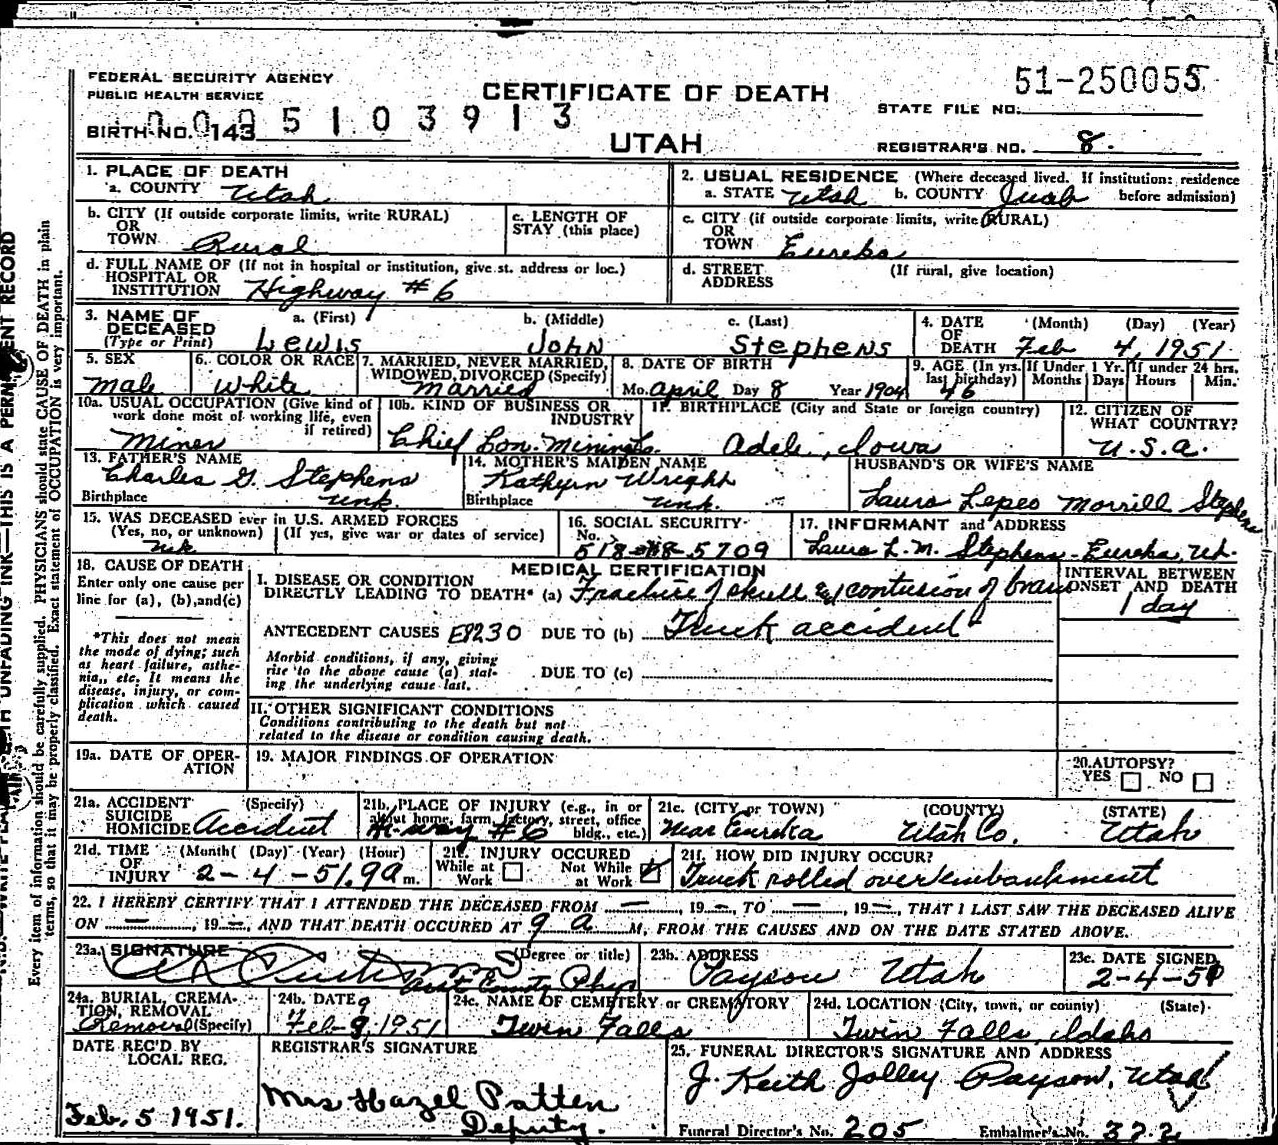 FEDERAL SECURITY AGENCY
PUBLIC HEALTH SERVICE
CERTIFICATE OF DEATH
51-250055
STATE FILE NO.
BIRTH NO. 143
5 1 0 3 9 1 3
UTAH
REGISTRAR'S NO. 8.
1. PLACE OF DEATH
a. COUNTY Utah
2. USUAL RESIDENCE (Where deceased lived. If institution: residence
a. STATE Utah b. COUNTY Juab before admission)
b. CITY (If outside corporate limits, write RURAL)
OR
TOWN Rural
c. LENGTH OF
STAY (this place)
c. CITY (if outside corporate limits, write RURAL)
OR
TOWN Eureka
d. FULL NAME OF (If not in hospital or institution, give st. address or loc.)
HOSPITAL OR
INSTITUTION Highway #6
d. STREET (If rural, give location)
ADDRESS
3. NAME OF a. (First) b. (Middle) c. (Last)
DECEASED
(Type or Print) Lewis John Stephens
4. DATE (Month) (Day) (Year)
OF
DEATH Feb 4, 1951
5. SEX
Male
6. COLOR OR RACE
White
7. MARRIED, NEVER MARRIED,
WIDOWED, DIVORCED (Specify)
Married
8. DATE OF BIRTH
Mo. April Day 8 Year 1904
9. AGE (In yrs.
last birthday)
46
If Under 1 Yr.
Months Days
If under 24 hrs.
Hours Min.
10a. USUAL OCCUPATION (Give kind of
work done most of working life, even
if retired)
Miner
10b. KIND OF BUSINESS OR
INDUSTRY
Chief Con. Mining Co.
11. BIRTHPLACE (City and State or foreign country)
Adel, Iowa
12. CITIZEN OF
WHAT COUNTRY?
U.S.A.
13. FATHER'S NAME
Charles G. Stephens
Birthplace unk.
14. MOTHER'S MAIDEN NAME
Kathyrn Wright
Birthplace unk.
HUSBAND'S OR WIFE'S NAME
Laura Morrill Stephens
15. WAS DECEASED ever in U.S. ARMED FORCES
(Yes, no, or unknown) (If yes, give war or dates of service)
unk
16. SOCIAL SECURITY
No.
5709
17. INFORMANT and ADDRESS
Laura L.M. Stephens - Eureka, Ut.
18. CAUSE OF DEATH
Enter only one cause per
line for (a), (b), and (c)
*This does not mean
the mode of dying; such
as heart failure, asthe-
nia, etc. It means the
disease, injury, or com-
plication which caused
death.
MEDICAL CERTIFICATION
I. DISEASE OR CONDITION
DIRECTLY LEADING TO DEATH* (a) Fracture of skull & contusion of brain
INTERVAL BETWEEN
ONSET AND DEATH
1 day
ANTECEDENT CAUSES E8230 DUE TO (b) Truck accident
Morbid conditions, if any, giving
rise to the above cause (a) stat-
ing the underlying cause last.
DUE TO (c)
II. OTHER SIGNIFICANT CONDITIONS
Conditions contributing to the death but not
related to the disease or condition causing death.
19a. DATE OF OPER-
ATION
19. MAJOR FINDINGS OF OPERATION
20. AUTOPSY?
YES NO
21a. ACCIDENT (Specify)
SUICIDE
HOMICIDE Accident
21b. PLACE OF INJURY (e.g., in or
about home, farm, factory, street, office
bldg., etc.)
Hi-way #6
21c. (CITY or TOWN) (COUNTY) (STATE)
Near Eureka Utah Co. Utah
21d. TIME (Month) (Day) (Year) (Hour)
OF
INJURY 2-4-51. 9a m.
21e. INJURY OCCURED
While at Work
Not While at Work
21f. HOW DID INJURY OCCUR?
Truck rolled over embankment
22. I HEREBY CERTIFY THAT I ATTENDED THE DECEASED FROM —, 19 —, TO —, 19 —, THAT I LAST SAW THE DECEASED ALIVE
ON —, 19 —, AND THAT DEATH OCCURED AT 9 a M., FROM THE CAUSES AND ON THE DATE STATED ABOVE.
23a. SIGNATURE (Degree or title)
County Phys
23b. ADDRESS
Payson Utah
23c. DATE SIGNED
2-4-51
24a. BURIAL, CREMA-
TION, REMOVAL
Removal (Specify)
24b. DATE 9
Feb 9, 1951
24c. NAME OF CEMETERY or CREMATORY
Twin Falls
24d. LOCATION (City, town, or county) (State)
Twin Falls, Idaho
DATE REC'D BY
LOCAL REG.
Feb. 5 1951.
REGISTRAR'S SIGNATURE
Mrs Hazel Patten
Deputy.
25. FUNERAL DIRECTOR'S SIGNATURE AND ADDRESS
J. Keith Jolley Payson, Utah
Funeral Director's No. 205 Embalmer's No. 372
Every item of information should be carefully supplied. PHYSICIANS should state CAUSE OF DEATH in plain
terms, so that it may be properly classified. Exact statement of OCCUPATION is very important.
UNFADING INK—THIS IS A PERMANENT RECORD